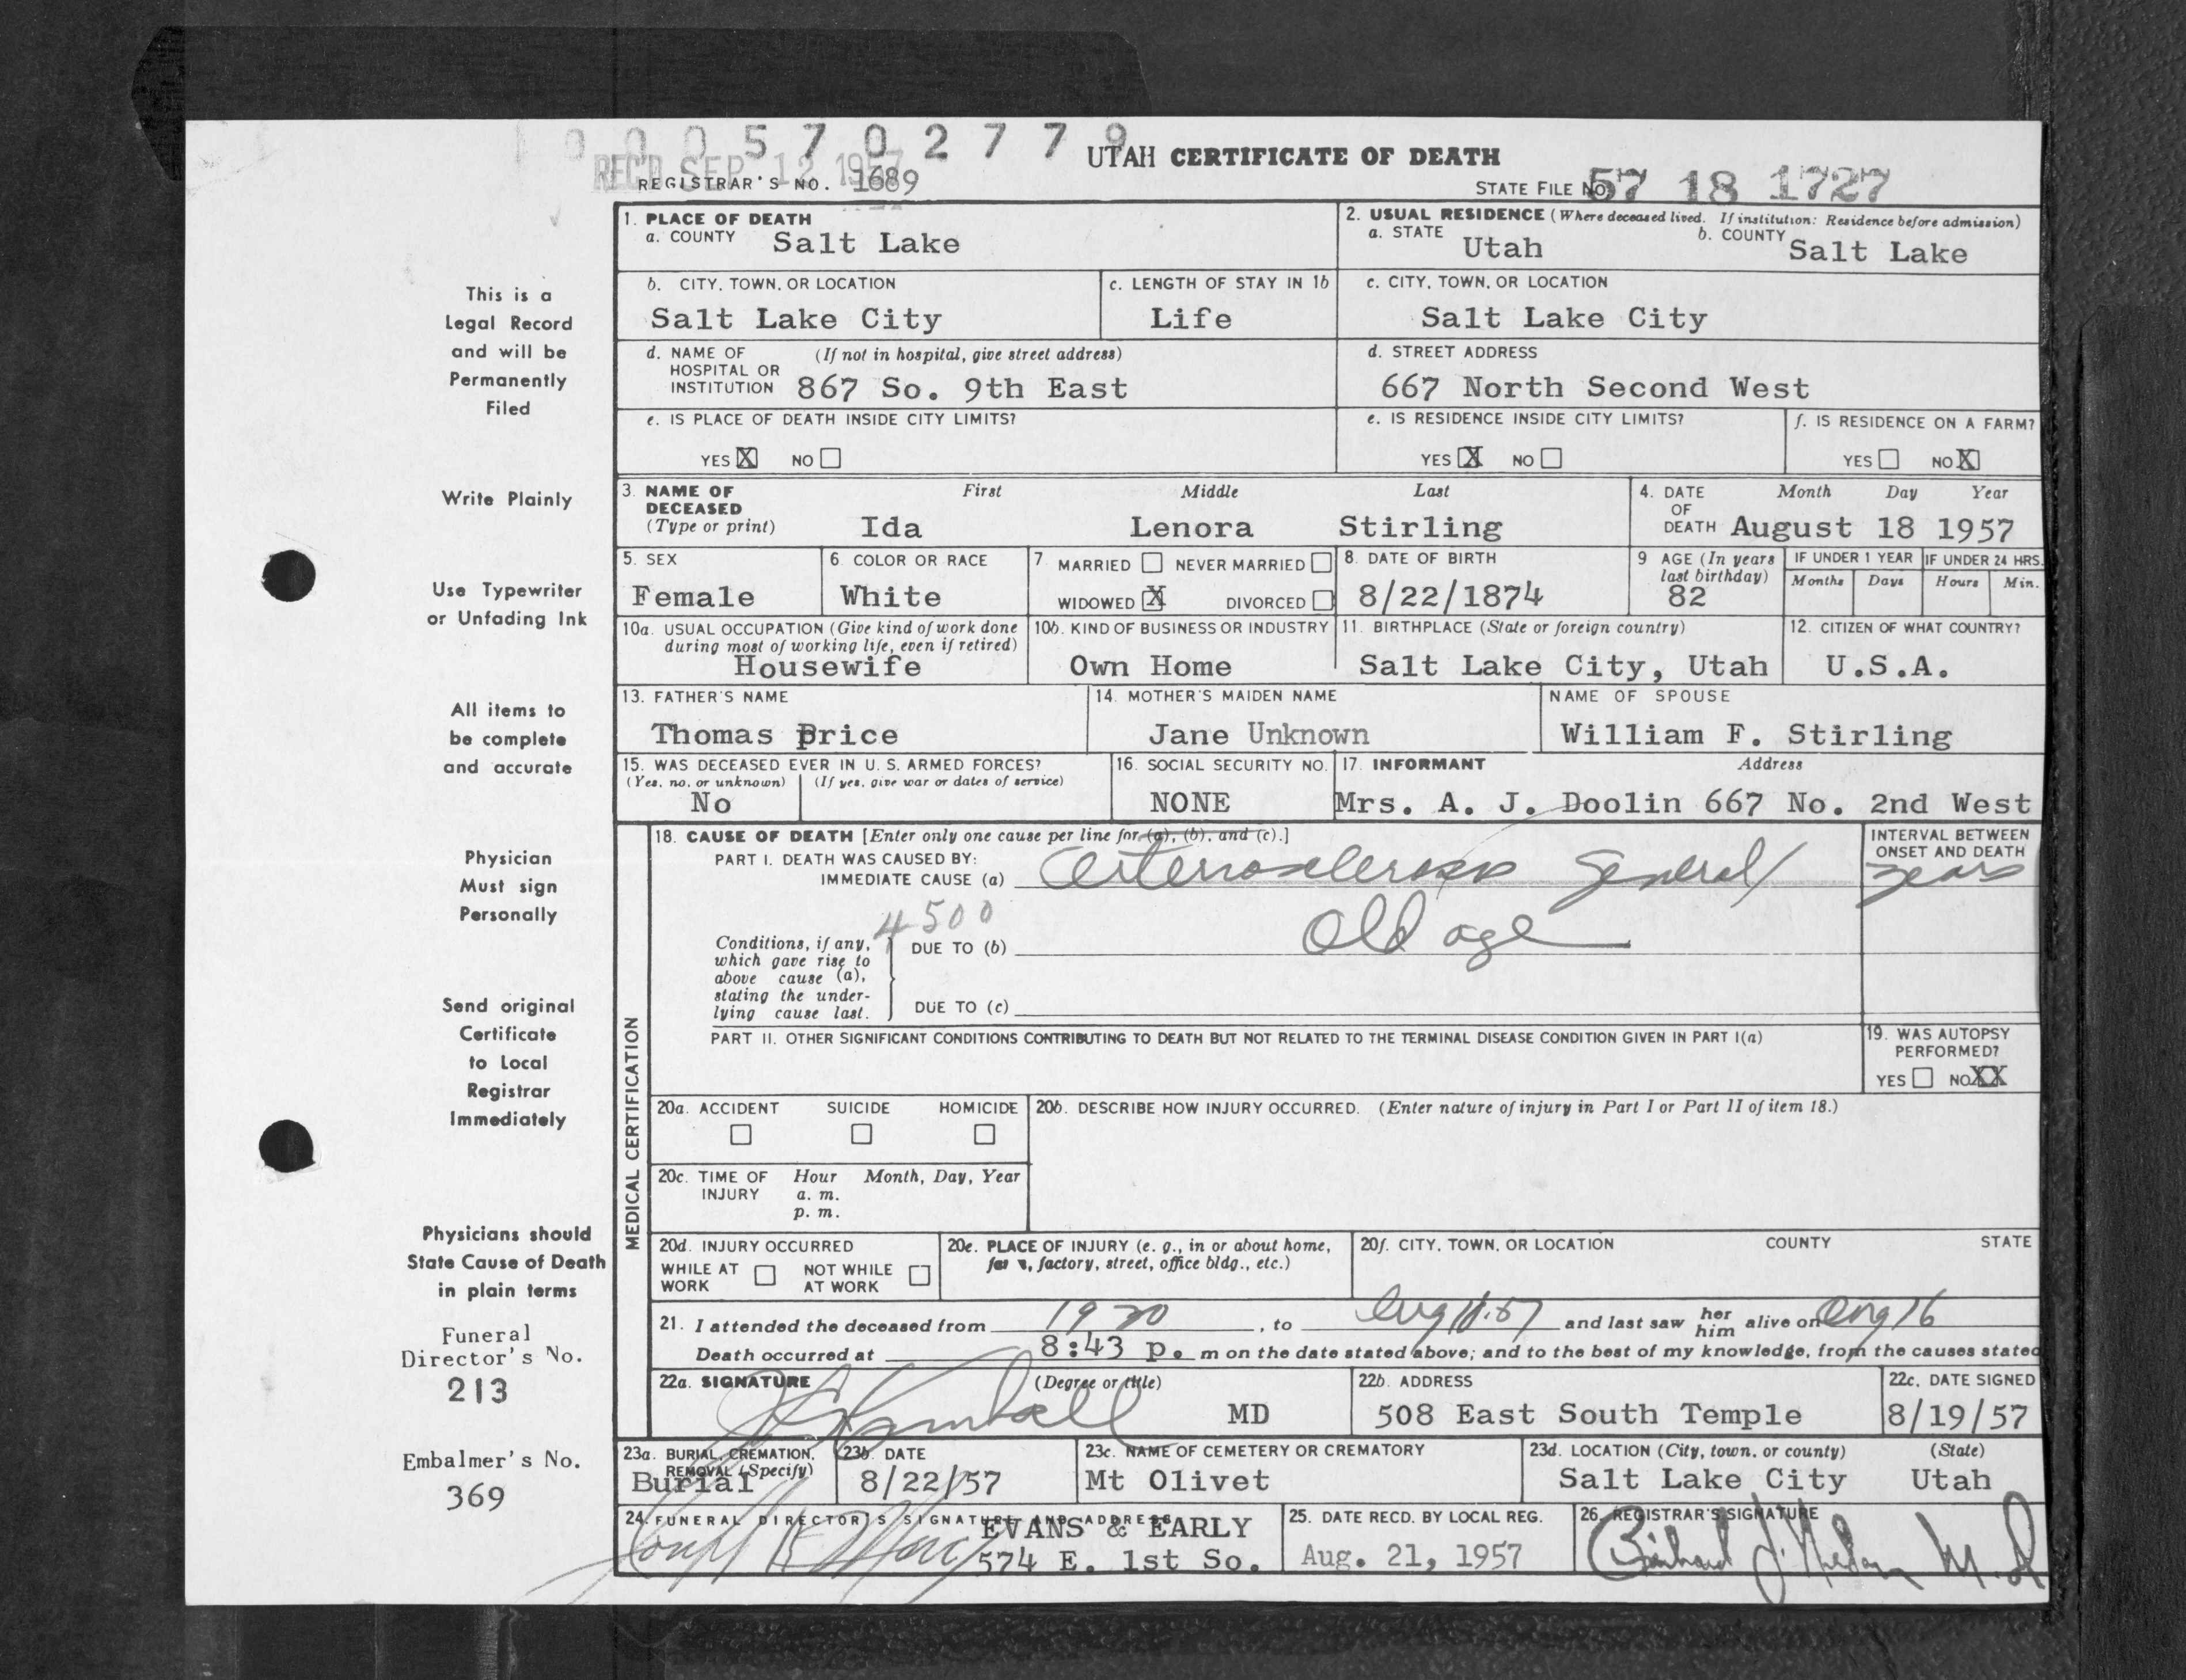 0 0 0 5 7 0 2 7 7 9
REC'D SEP 12 1957
UTAH CERTIFICATE OF DEATH
REGISTRAR'S NO. 1689
STATE FILE NO. 57 18 1727
This is a
Legal Record
and will be
Permanently
Filed
Write Plainly
Use Typewriter
or Unfading Ink
All items to
be complete
and accurate
Physician
Must sign
Personally
Send original
Certificate
to Local
Registrar
Immediately
Physicians should
State Cause of Death
in plain terms
Funeral
Director's No.
213
Embalmer's No.
369
1. PLACE OF DEATH
a. COUNTY Salt Lake
2. USUAL RESIDENCE (Where deceased lived. If institution: Residence before admission)
a. STATE Utah b. COUNTY Salt Lake
b. CITY, TOWN, OR LOCATION
Salt Lake City
c. LENGTH OF STAY IN 1b
Life
c. CITY, TOWN, OR LOCATION
Salt Lake City
d. NAME OF (If not in hospital, give street address)
HOSPITAL OR
INSTITUTION 867 So. 9th East
d. STREET ADDRESS
667 North Second West
e. IS PLACE OF DEATH INSIDE CITY LIMITS?
YES X NO
e. IS RESIDENCE INSIDE CITY LIMITS?
YES X NO
f. IS RESIDENCE ON A FARM?
YES NO X
3. NAME OF DECEASED (Type or print)
First Middle Last
Ida Lenora Stirling
4. DATE OF DEATH Month Day Year
August 18 1957
5. SEX
Female
6. COLOR OR RACE
White
7 MARRIED NEVER MARRIED
WIDOWED X DIVORCED
8. DATE OF BIRTH
8/22/1874
9 AGE (In years last birthday)
82
IF UNDER 1 YEAR
Months Days
IF UNDER 24 HRS.
Hours Min.
10a. USUAL OCCUPATION (Give kind of work done
during most of working life, even if retired)
Housewife
10b. KIND OF BUSINESS OR INDUSTRY
Own Home
11. BIRTHPLACE (State or foreign country)
Salt Lake City, Utah
12. CITIZEN OF WHAT COUNTRY?
U.S.A.
13. FATHER'S NAME
Thomas Price
14. MOTHER'S MAIDEN NAME
Jane Unknown
NAME OF SPOUSE
William F. Stirling
15. WAS DECEASED EVER IN U. S. ARMED FORCES?
(Yes, no, or unknown) (If yes, give war or dates of service)
No
16. SOCIAL SECURITY NO.
NONE
17. INFORMANT Address
Mrs. A. J. Doolin 667 No. 2nd West
MEDICAL CERTIFICATION
18. CAUSE OF DEATH [Enter only one cause per line for (a), (b), and (c).]
PART I. DEATH WAS CAUSED BY:
IMMEDIATE CAUSE (a) Arteriosclerosis General
INTERVAL BETWEEN
ONSET AND DEATH
years
4500
Conditions, if any,
which gave rise to
above cause (a),
stating the under-
lying cause last.
DUE TO (b) Old age
DUE TO (c)
PART II. OTHER SIGNIFICANT CONDITIONS CONTRIBUTING TO DEATH BUT NOT RELATED TO THE TERMINAL DISEASE CONDITION GIVEN IN PART I(a)
19. WAS AUTOPSY
PERFORMED?
YES NO XX
20a. ACCIDENT SUICIDE HOMICIDE
20b. DESCRIBE HOW INJURY OCCURRED. (Enter nature of injury in Part I or Part II of item 18.)
20c. TIME OF INJURY Hour Month, Day, Year
a. m.
p. m.
20d. INJURY OCCURRED
WHILE AT WORK NOT WHILE AT WORK
20e. PLACE OF INJURY (e. g., in or about home,
factory, street, office bldg., etc.)
20f. CITY, TOWN, OR LOCATION COUNTY STATE
21. I attended the deceased from , to and last saw her him alive on Aug 16
Death occurred at 8:43 p. m on the date stated above; and to the best of my knowledge, from the causes stated
22a. SIGNATURE (Degree or title)
MD
22b. ADDRESS
508 East South Temple
22c. DATE SIGNED
8/19/57
23a. BURIAL, CREMATION,
REMOVAL (Specify)
Burial
23b. DATE
8/22/57
23c. NAME OF CEMETERY OR CREMATORY
Mt Olivet
23d. LOCATION (City, town, or county) (State)
Salt Lake City Utah
24. FUNERAL DIRECTOR'S SIGNATURE AND ADDRESS
EVANS & EARLY
574 E. 1st So.
25. DATE RECD. BY LOCAL REG.
Aug. 21, 1957
26. REGISTRAR'S SIGNATURE
M.D